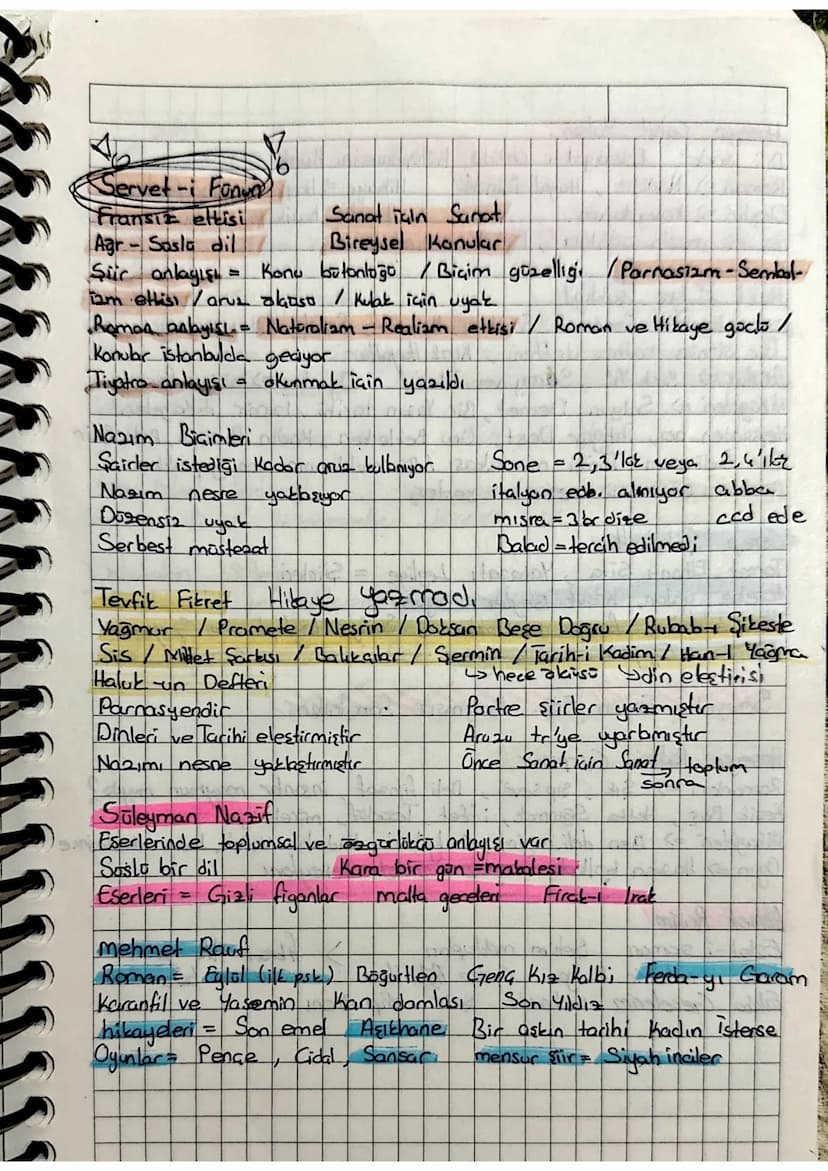 Servet-i Fünun
Fransız etkisi Sanat için Sanat
Ağır - Süslü dil Bireysel Konular
Şiir anlayışı = Konu bütünlüğü / Biçim güzelliği / Parnasizm - Sembol-
izm etkisi / aruz ölçüsü / Kulak için uyak
Roman anlayışı = Natüralizm - Realizm etkisi / Roman ve Hikaye güçlü /
Konular istanbulda geçiyor
Tiyatro anlayışı = okunmak için yazıldı
Nazım Biçimleri
Şairler istediği kadar aruz kullanıyor Sone = 2,3'lük veya 2,4'lük
Nazım nesre yaklaşıyor italyan edb. alınıyor abba
Düzensiz uyak mısra = 3 br dize ccd ede
Serbest müstezat Balad = tercih edilmedi
Tevfik Fikret Hikaye yazmadı
Yağmur / Promete / Nesrin / Doksan Beşe Doğru / Rubab-ı Şikeste
Sis / Millet Şarkısı / Balıkçılar / Şermin / Tarih-i Kadim / Han-ı Yağma
Haluk-un Defteri ↳ hece ölçüsü ↳ din eleştirisi
Parnasyendir Portre şiirler yazmıştır
Dinleri ve Tarihi eleştirmiştir Aruzu tr'ye uyarlamıştır
Nazımı nesne yaklaştırmıştır Önce Sanat için Sanat, toplum
sonra
Süleyman Nazif
Eserlerinde toplumsal ve özgürlükçü anlayışı var
Süslü bir dil Kara bir gün = makalesi
Eserleri = Gizli figanlar malta geceleri Firak-ı Irak
mehmet Rauf
Roman = Eylül (ilk psk) Böğürtlen Genç Kız Kalbi Ferda-yı Garam
Karanfil ve Yasemin Kan damlası Son Yıldız
hikayeleri = Son emel Aşıkhane Bir aşkın tarihi Kadın İsterse
Oyunlar = Pençe, Cidal, Sansar mensur şiir = Siyah inciler